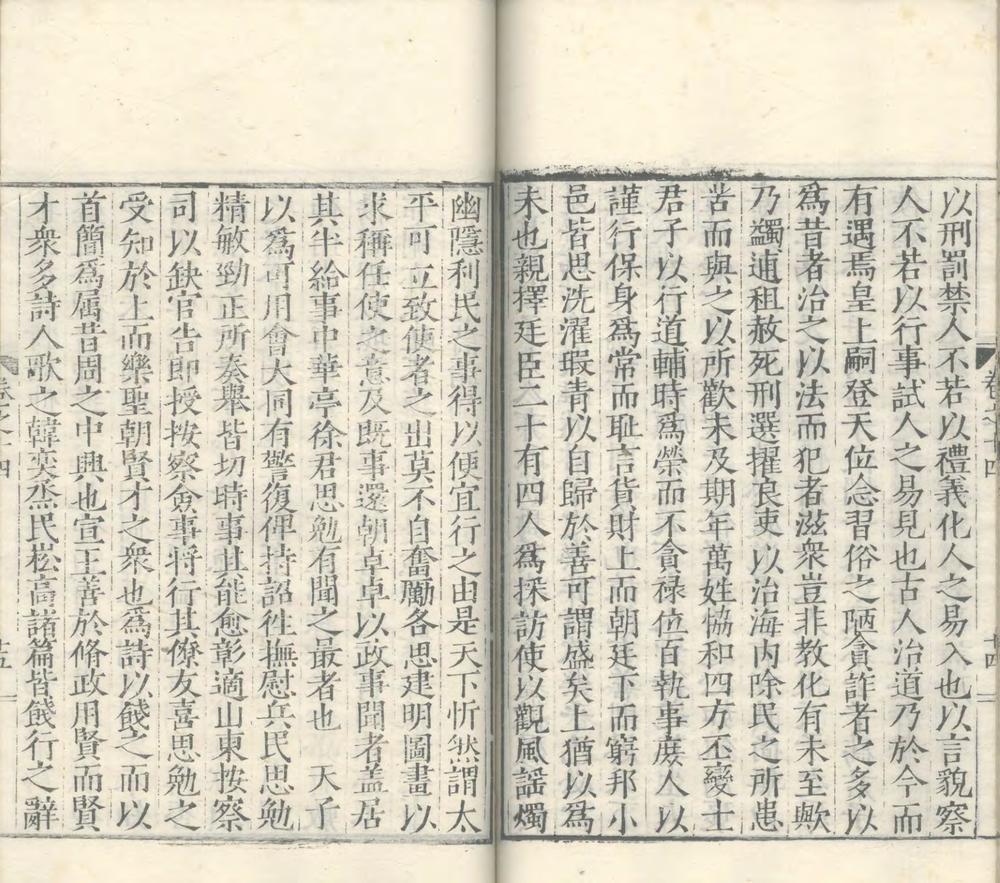 以刑罰禁人不若以禮義化人之易入也以言貌察
人不若以行事試人之易見也古人治道乃於今而
有遇焉皇上嗣登天位念習俗之陋貪詐者之多以
為昔者治之以法而犯者滋衆豈非教化有未至歟
乃蠲逋租赦死刑選擢良吏以治海內除民之所患
苦而與之以所歡未及期年萬姓協和四方丕變士
君子以行道輔時為榮而不貪祿位百執事庶人以
謹行保身為常而恥言貨財上而朝廷下而窮邦小
邑皆思洗濯瑕眚以自歸於善可謂盛矣上猶以為
未也親擇廷臣二十有四人為採訪使以觀風謠燭
卷之十四
十四
幽隱利民之事得以便宜行之由是天下忻然謂太
平可立致使者之出莫不自奮勵各思建明圖畫以
求稱任使之意及既事還朝卓卓以政事聞者盖居
其半給事中華亭徐君思勉有聞之最者也 天子
以為可用會大同有警復俾持詔徃撫慰兵民思勉
精敏勁正所奏舉皆切時事且能愈彰適山東按察
司以缺官告即授按察僉事將行其僚友喜思勉之
受知於上而樂聖朝賢才之衆也為詩以餞之而以
首簡為属昔周之中興也宣王善於脩政用賢而賢
才衆多詩人歌之韓奕烝民崧高諸篇皆餞行之辭
卷之十四
十五